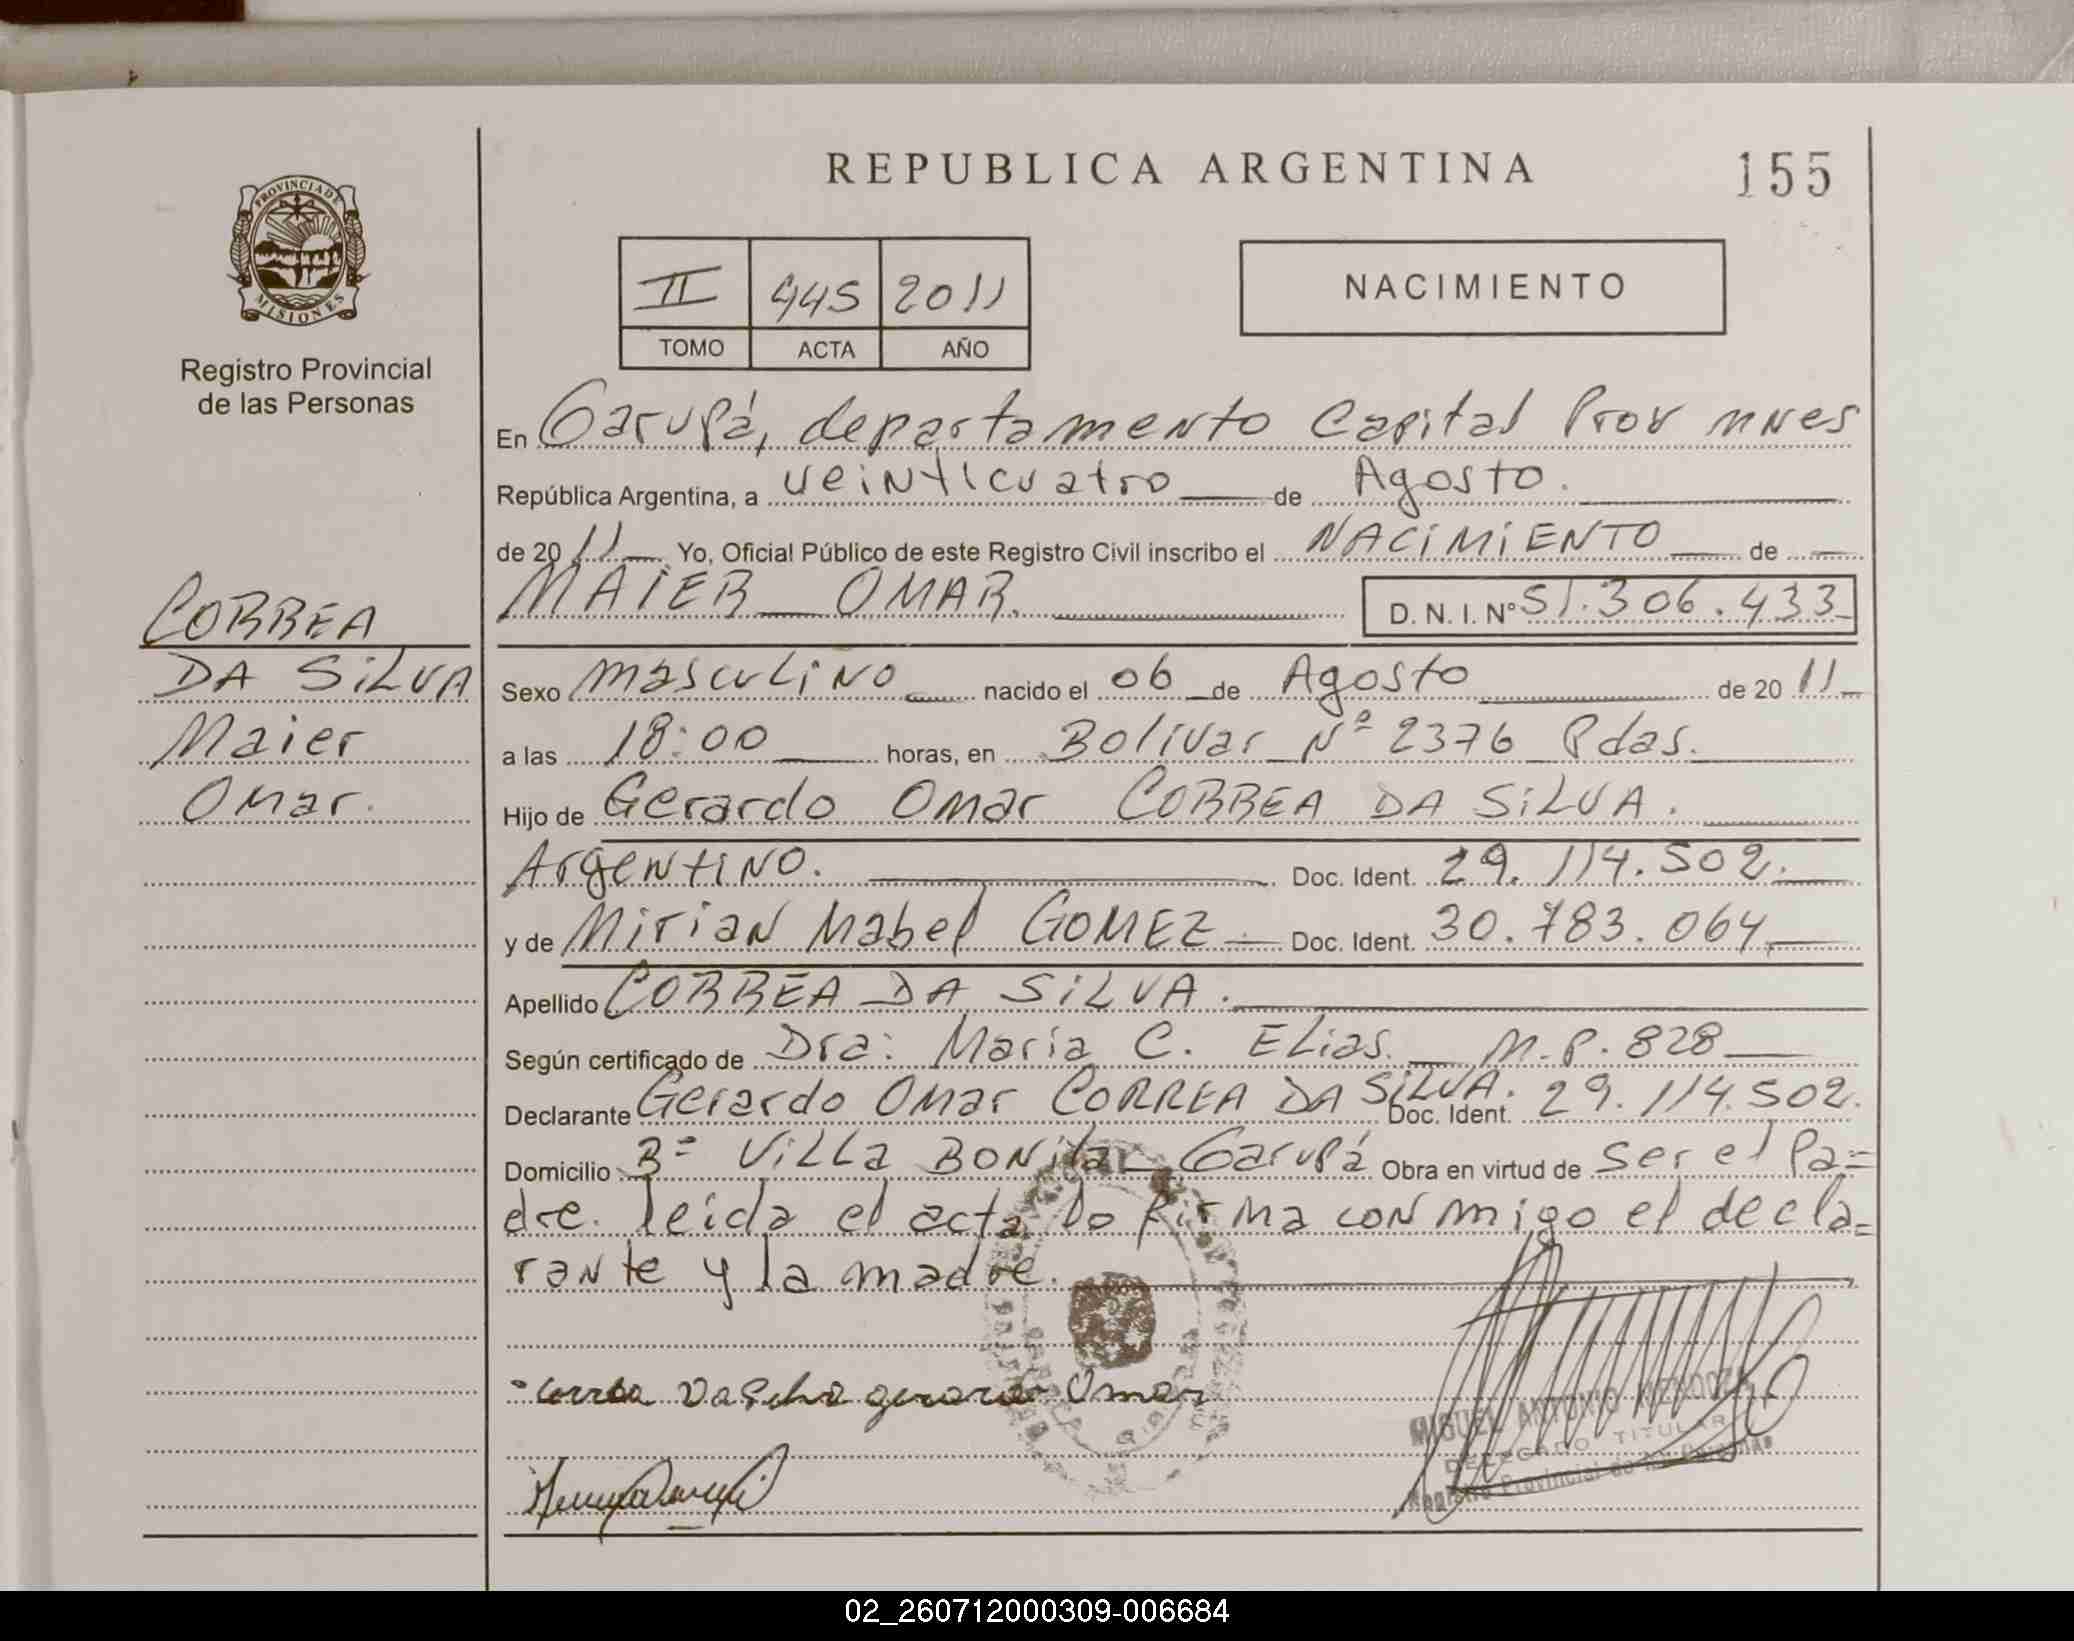 REPUBLICA ARGENTINA
155
PROVINCIA DE MISIONES
Registro Provincial
de las Personas
II 445 2011
TOMO ACTA AÑO
NACIMIENTO
En Garupá, departamento Capital Prov mnes
República Argentina, a veinticuatro de Agosto.
de 2011 Yo, Oficial Público de este Registro Civil inscribo el NACIMIENTO de
MAIER OMAR. D. N. I. Nº 51.306.433
CORREA
DA SILVA
Maier
Omar.
Sexo masculino nacido el 06 de Agosto de 2011
a las 18:00 horas, en Bolivar Nº 2376 Pdas.
Hijo de Gerardo Omar CORREA DA SILVA.
Argentino. Doc. Ident. 29.114.502.
y de Mirian Mabel GOMEZ Doc. Ident. 30.783.064
Apellido CORREA DA SILVA.
Según certificado de Dra: Maria C. Elias. M.P. 828
Declarante Gerardo Omar CORREA DA SILVA. Doc. Ident. 29.114.502.
Domicilio Bº Villa Bonita - Garupá Obra en virtud de ser el Pa=
dre. leida el acta lo firma conmigo el decla=
rante y la madre.
Correa Da Silva gerardo Omar
MIGUEL ANTONIO MENDOZA
DELEGADO TITULAR
Registro Provincial de las Personas
02_260712000309-006684